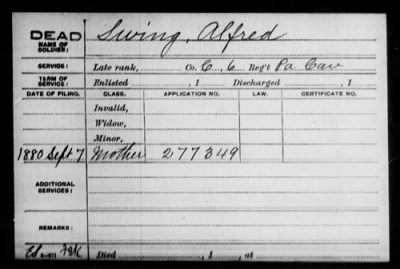 DEAD Swing, Alfred
NAME OF SOLDIER:
SERVICE: Late rank, Co. C, 6 Reg't Pa Cav
TERM OF SERVICE: Enlisted , 1 Discharged , 1
DATE OF FILING. CLASS. APPLICATION NO. LAW. CERTIFICATE NO.
Invalid,
Widow,
Minor,
1880 Sept 7 Mother 277349
ADDITIONAL SERVICES:
REMARKS:
Died , 1 , at